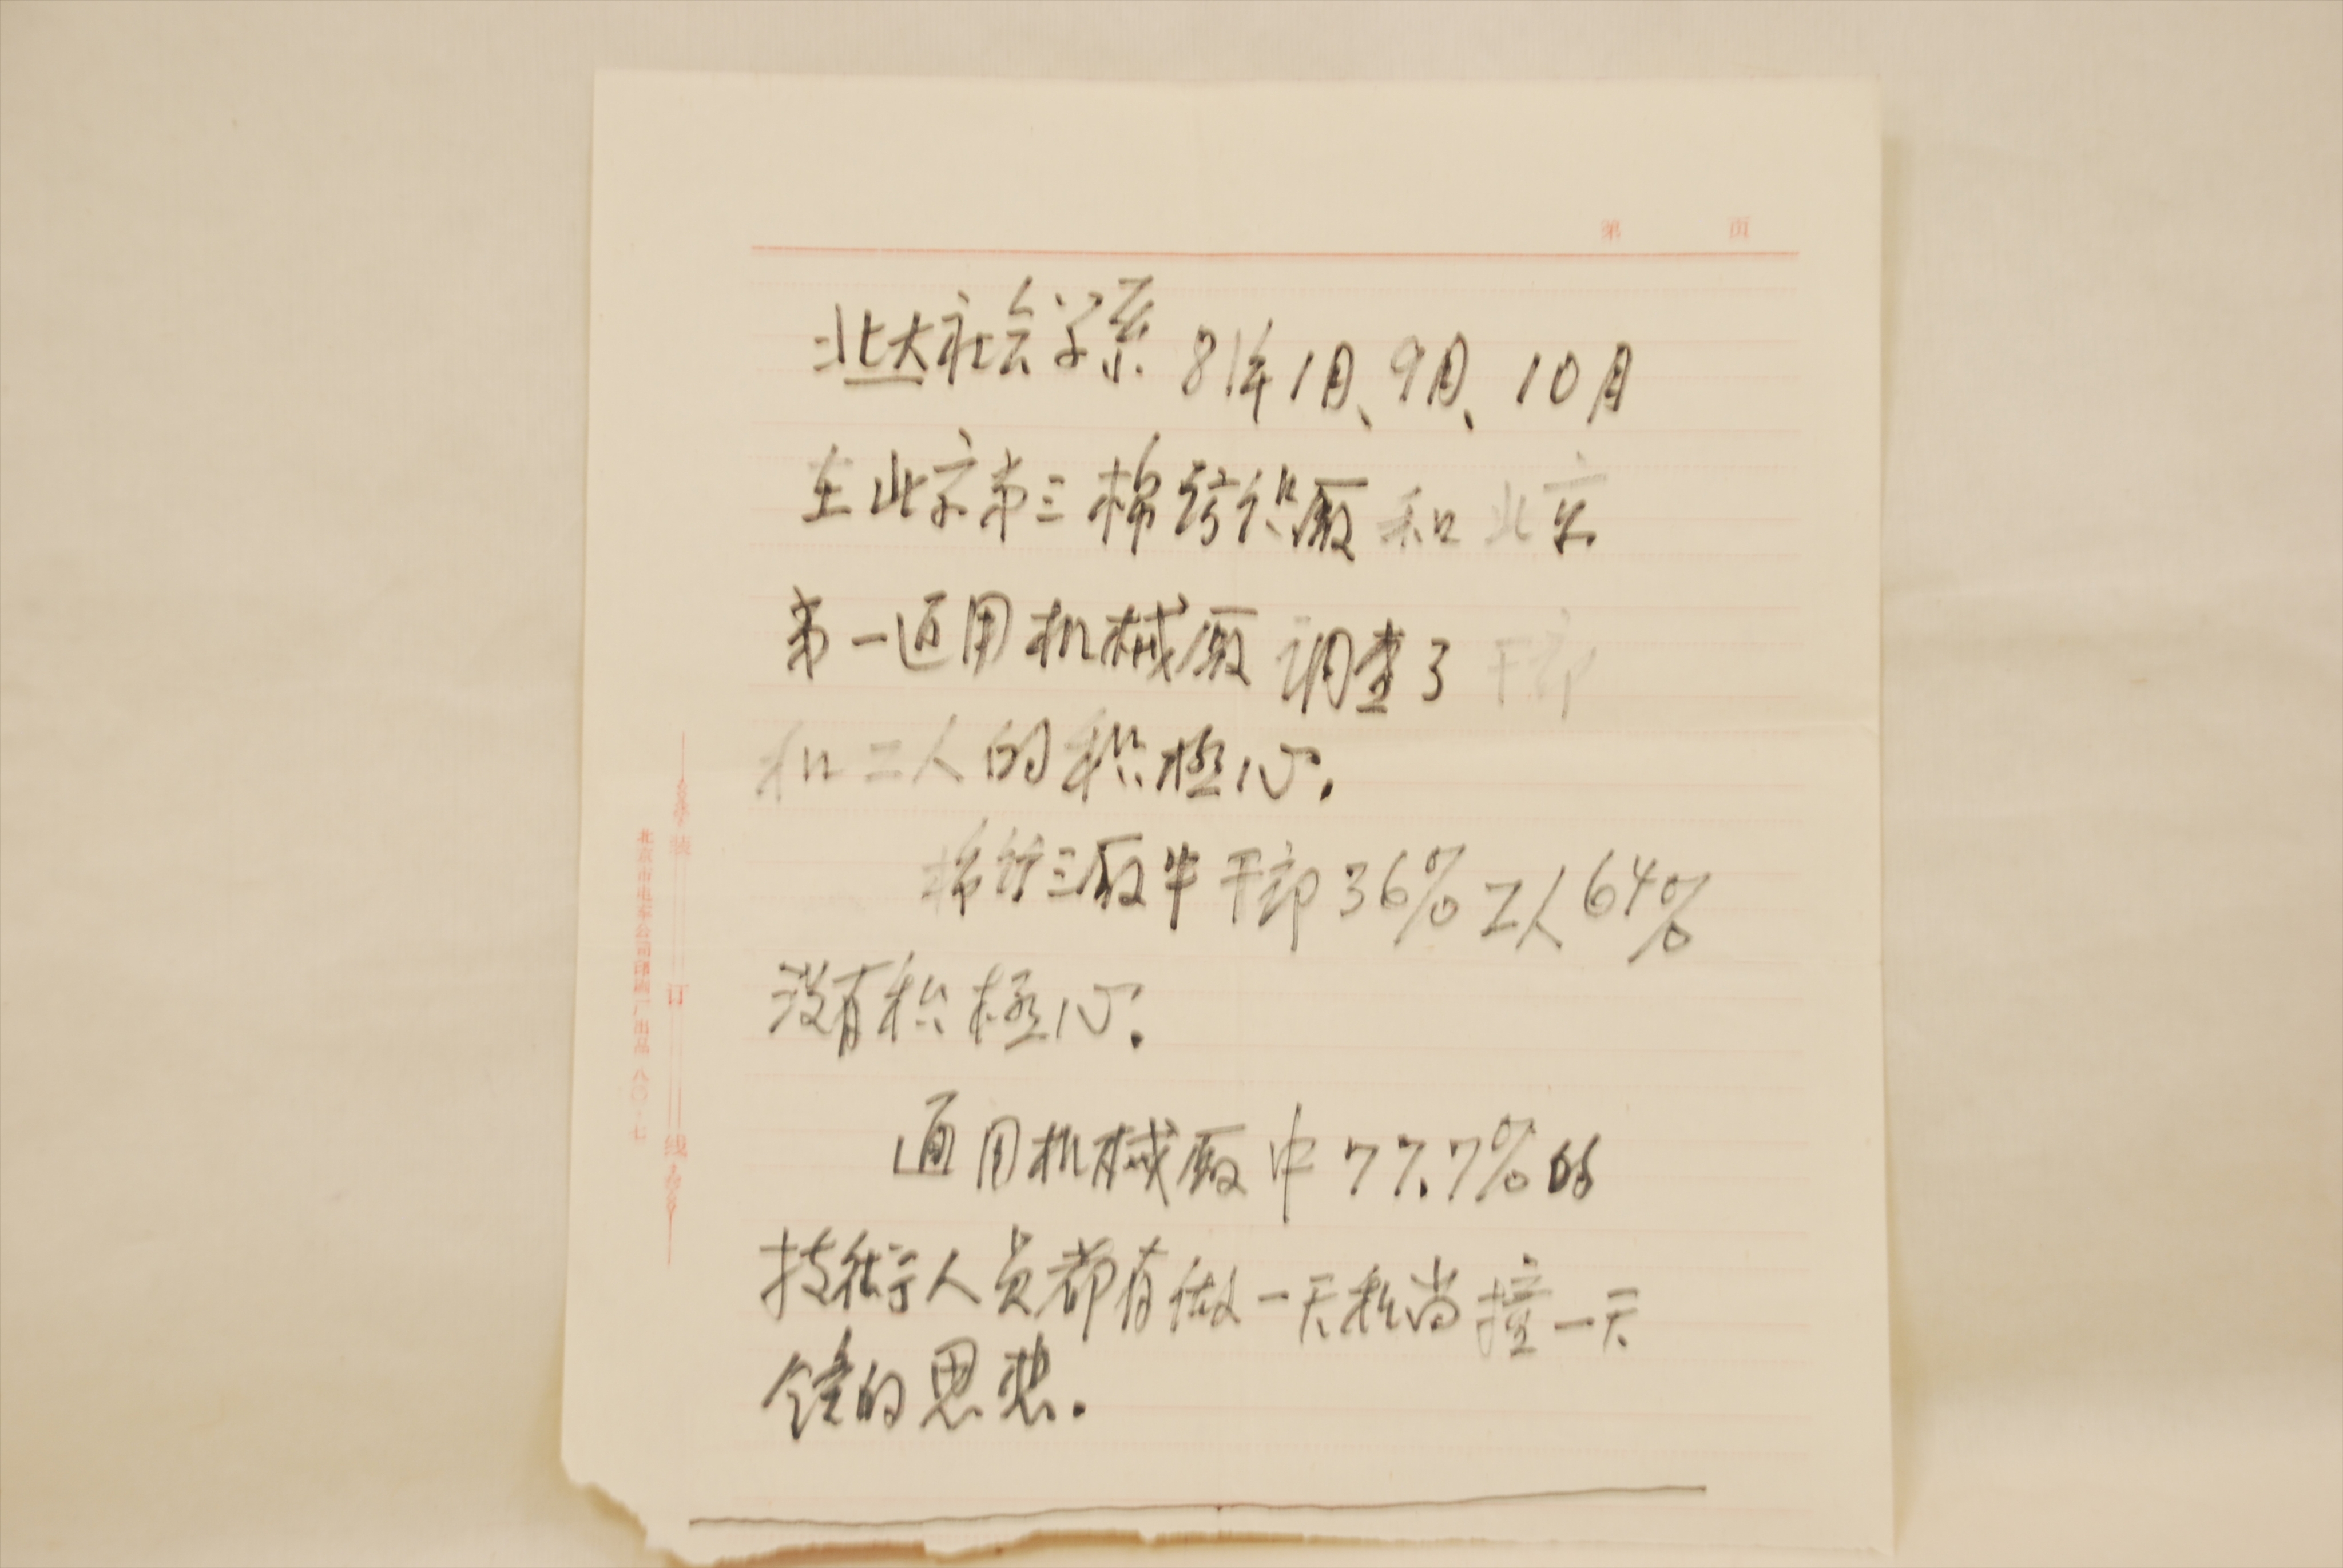 第 页
北大社会学系 81年1月、9月、10月
在北京第三棉纺织厰和北京
第一通用机械厰调查了干部
和工人的积极心.
棉纺三厰中干部36%工人64%
没有积极心.
通用机械厰中77.7%的
技術人员都有做一天和尚撞一天
鐘的思想.
装订线
北京市电车公司印刷厂出品 八〇·七